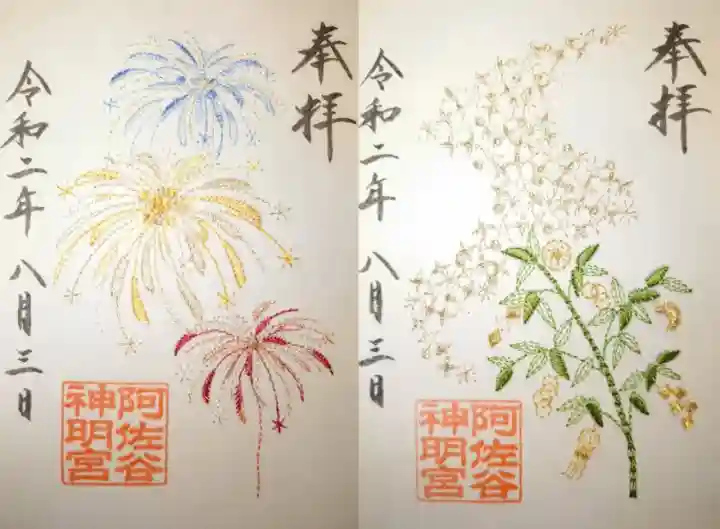 奉拝
令和二年 八月三日
阿佐谷
神明宮
奉拝
令和二年 八月三日
阿佐谷
神明宮